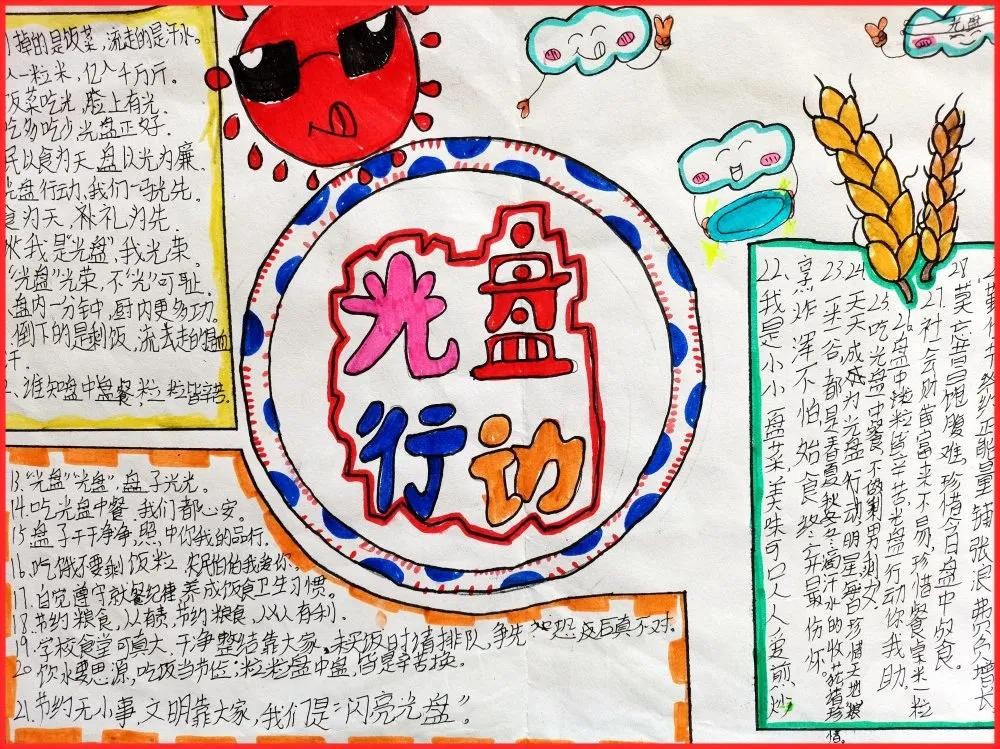 光盘
行动
掉的是饭菜，流走的是汗水。
一粒米，亿入千万斤。
饭菜吃光，脸上有光.
吃多吃少，光盘正好.
民以食为天，盘以光为廉.
光盘行动，我们一马光先.
食为天，礼为先.
我是"光盘"我光荣.
"光盘"光荣，不"光"可耻.
盘内一分钟，厨内更多功.
倒下的是剩饭，流去走的是
汗.
谁知盘中盘餐，粒粒皆辛苦.
13."光盘""光盘"，盘子光光。
14.吃光盘中餐，我们都心安。
15.盘子干干净净，照中你我的品行.
16.吃饭不要剩饭粒
17.自觉遵守就餐纪律，养成饮食卫生习惯。
18.节约粮食，人有责，节约粮食，人人有利.
19.学校食堂可真大，干净整结靠大家，未买饭时请排队，争先恐后真不对.
20.饮水要思源，吃饭当节俭；粒粒盘中盘，皆是辛苦换。
21.节约无小事，文明靠大家，我们是"闪亮光盘"。
光盘
22.我是小小盘菜，美味可口人人爱，煎炒
烹炸浑不怕，始食终弃最伤你。
23.一米一谷，都是春夏秋冬；滴汗水的收花请珍
惜。
24.天天成为光盘行动明星，每日珍惜天地粮
25.吃光盘中餐，不的剩男剩女.
26.盘中粒粒皆辛苦，光盘行动你我助.
27.社会财富富来不易，珍惜餐桌米一粒
28.莫忘昔日饱腹难，珍惜今日盘中饭食.
正能量，铺张浪费负增长